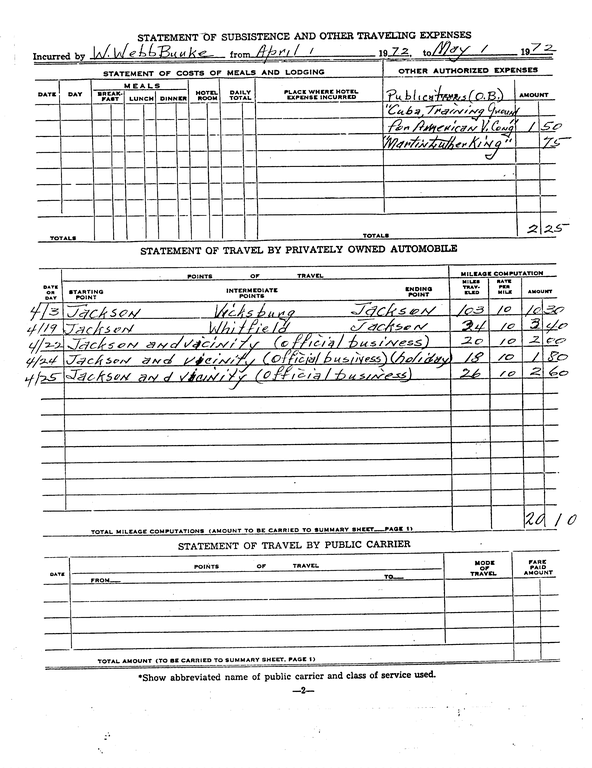 STATEMENT OF SUBSISTENCE AND OTHER TRAVELING EXPENSES
Incurred by W. Webb Burke from April 1 1972, to May 1 1972
STATEMENT OF COSTS OF MEALS AND LODGING OTHER AUTHORIZED EXPENSES
DATE DAY MEALS BREAK-FAST LUNCH DINNER HOTEL ROOM DAILY TOTAL PLACE WHERE HOTEL EXPENSE INCURRED Publications (O.B.) AMOUNT
"Cuba, Training Ground
for American V. Cong" 1 50
"Martin Luther King" 75
TOTALS TOTALS 2 25
STATEMENT OF TRAVEL BY PRIVATELY OWNED AUTOMOBILE
POINTS OF TRAVEL MILEAGE COMPUTATION
DATE OR DAY STARTING POINT INTERMEDIATE POINTS ENDING POINT MILES TRAV-ELED RATE PER MILE AMOUNT
4/3 Jackson Vicksburg Jackson 103 10 10 30
4/19 Jackson Whitfield Jackson 34 10 3 40
4/22 Jackson and vicinity (official business) 20 10 2 00
4/24 Jackson and vicinity (official business) (holiday) 18 10 1 80
4/25 Jackson and vicinity (official business) 26 10 2 60
TOTAL MILEAGE COMPUTATIONS (AMOUNT TO BE CARRIED TO SUMMARY SHEET PAGE 1) 20 10
STATEMENT OF TRAVEL BY PUBLIC CARRIER
DATE POINTS OF TRAVEL MODE OF TRAVEL FARE PAID AMOUNT
FROM TO
TOTAL AMOUNT (TO BE CARRIED TO SUMMARY SHEET, PAGE 1)
*Show abbreviated name of public carrier and class of service used.
—2—